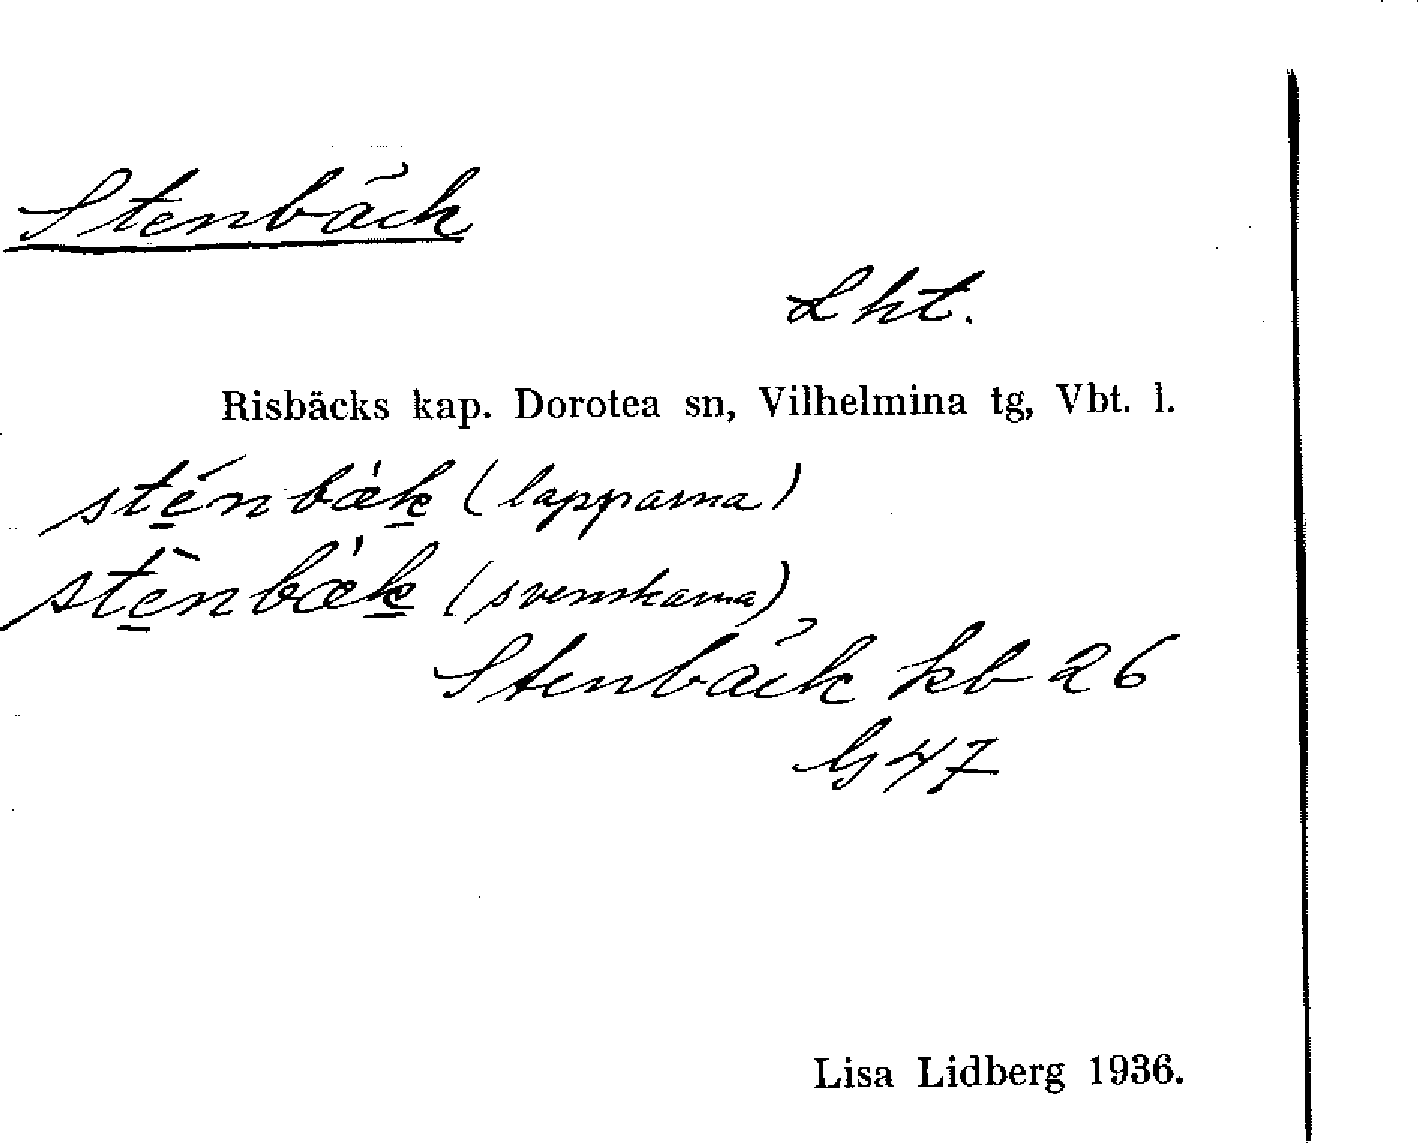 Stenbäck
Lht.
Risbäcks kap. Dorotea sn, Vilhelmina tg, Vbt. l.
sténbæ̍k (lapparna)
stènbæ̍k (svenskarna)
Stenbäck kb 26
G 47
Lisa Lidberg 1936.